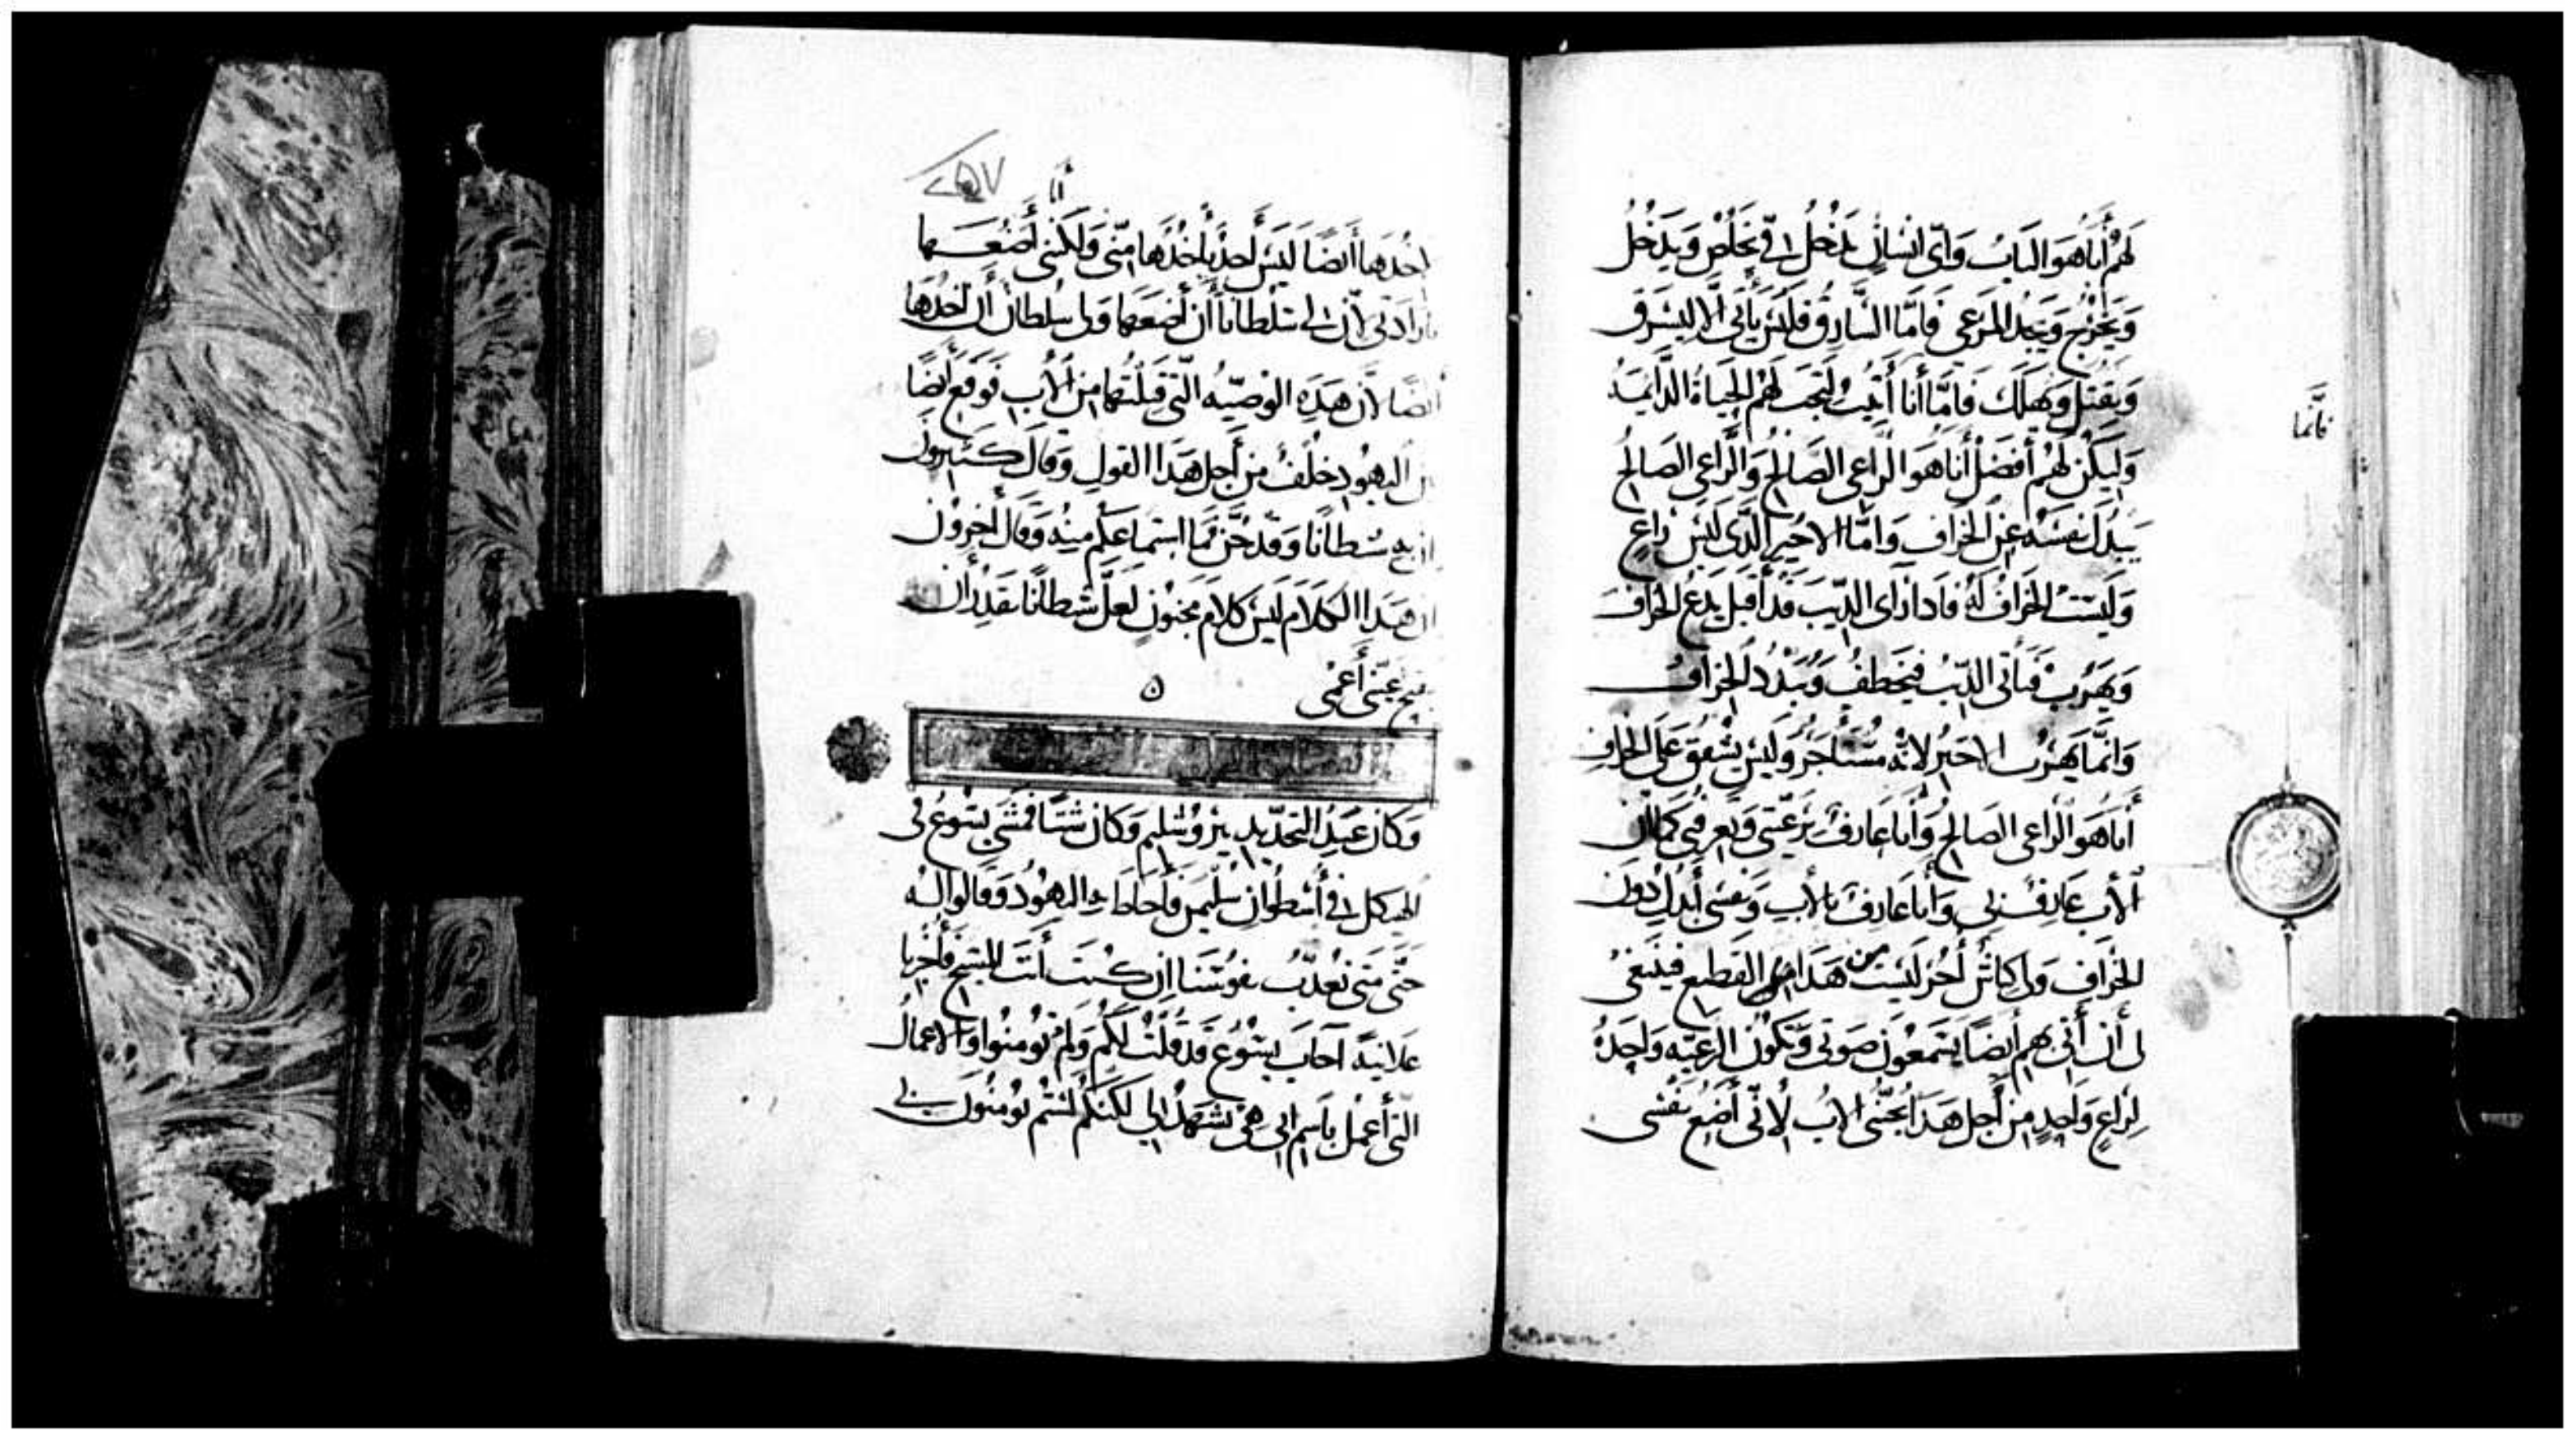 لهم أنا هو الباب وأي انسان يدخل في يخلص ويدخل
ويخرج ويجد المرعى فاما السارق فليس يأتي الا ليسرق
ويقتل ويهلك فاما أنا أتيت لتجب لهم الحياة الدايمه
فانما
وليكن لهم أفضل أنا هو الراعي الصالح والراعي الصالح
يبدل نفسه عن الخراف واما الاجير الدي ليس براع
وليست الخراف له فادا رأى الديب قد أقبل يدع الخراف
ويهرب فيأتي الديب فيخطف ويبدد الخراف
وانما يهرب الاجير لانه مستأجر وليس يشفق على الخراف
أنا هو الراعي الصالح وأنا عارف برعيتي وتعرفني كما أن
الأب عارف بي وأنا عارف بالأب ونفسي أبدل دون
الخراف ولي كباش أخر ليست من هدا القطيع فينبغي
لي أن أتي بهم أيضا يسمعون صوتي وتكون الرعيه واحده
لراع واحد من أجل هدا يحبني الاب لاني أضع نفسي
٢٥٧
أنا
اخدها أيضا ليس أحد يأخدها مني ولكنني أضعها
بارادتي لأن لي سلطانا أن أضعها ولي سلطان أن اخدها
أيضا لأن هده الوصيه التي قبلتها من الأب فوقع أيضا
بين اليهود خلف من أجل هدا القول وقال كثيرون
ان به شطانا وقد جن فما استماعكم منه وقال أخرون
ان هدا الكلام ليس كلام مجنون لعل شطانا يقدر أن
يفتح عيني أعمى ن
وكان عيد التجديد بيروشليم وكان شتا فمشى يسوع في
الهيكل في أسطوان سليمن فأحاط به اليهود وقالوا له
حتى متى تعدب نفوسنا ان كنت أنت المسيح فأخبرنا
علانية اجاب يسوع قد قلت لكم ولم تومنوا والاعمال
التي أعمل باسم ابي هي تشهد لي لكنكم لستم تومنون بي